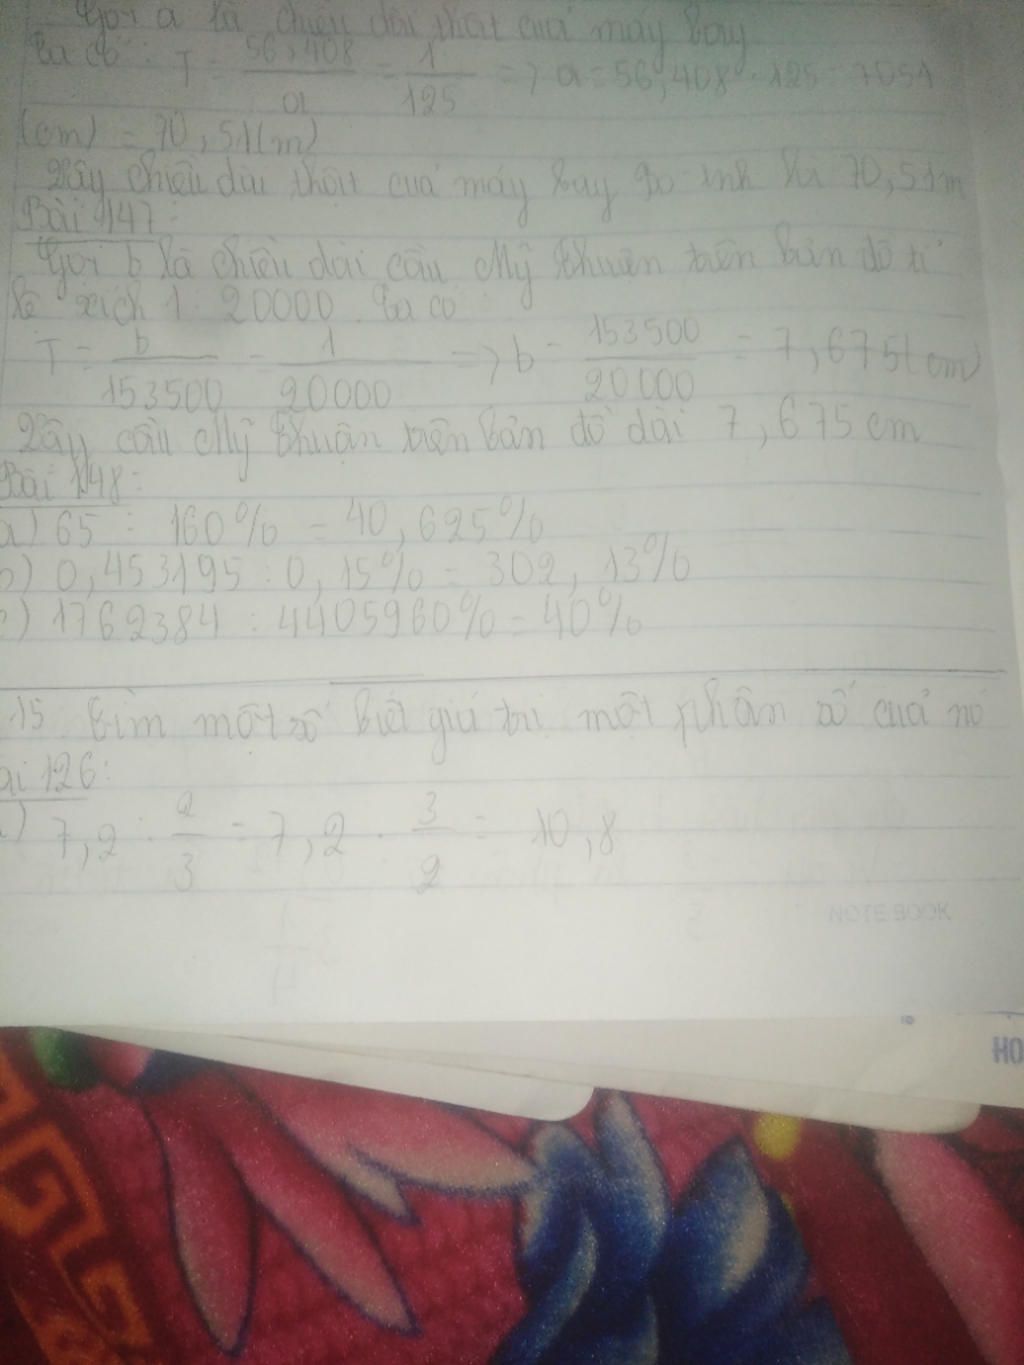 Gọi a là chiều dài thật của máy bay
Ta có: T = 56,408 / a = 1 / 125 => a = 56,408 . 125 = 7051
(cm) = 70,51(m)
Vậy chiều dài thật của máy bay Bô-inh là 70,51m
Bài 147:
Gọi b là chiều dài cầu Mỹ Thuận trên bản đồ tỉ
lệ xích 1 : 20000. Ta có
T = b / 153500 = 1 / 20000 => b = 153500 / 20000 = 7,675(cm)
Vậy cầu Mỹ Thuận trên bản đồ dài 7,675 cm
Bài 148:
a) 65 : 160% = 40,625%
b) 0,453195 : 0,15% = 302,13%
c) 1762384 : 4405960% = 40%
15 Tìm một số biết giá trị một phân số của nó
ài 126:
a) 7,2 : 2 / 3 = 7,2 . 3 / 2 = 10,8
NOTEBOOK
HO